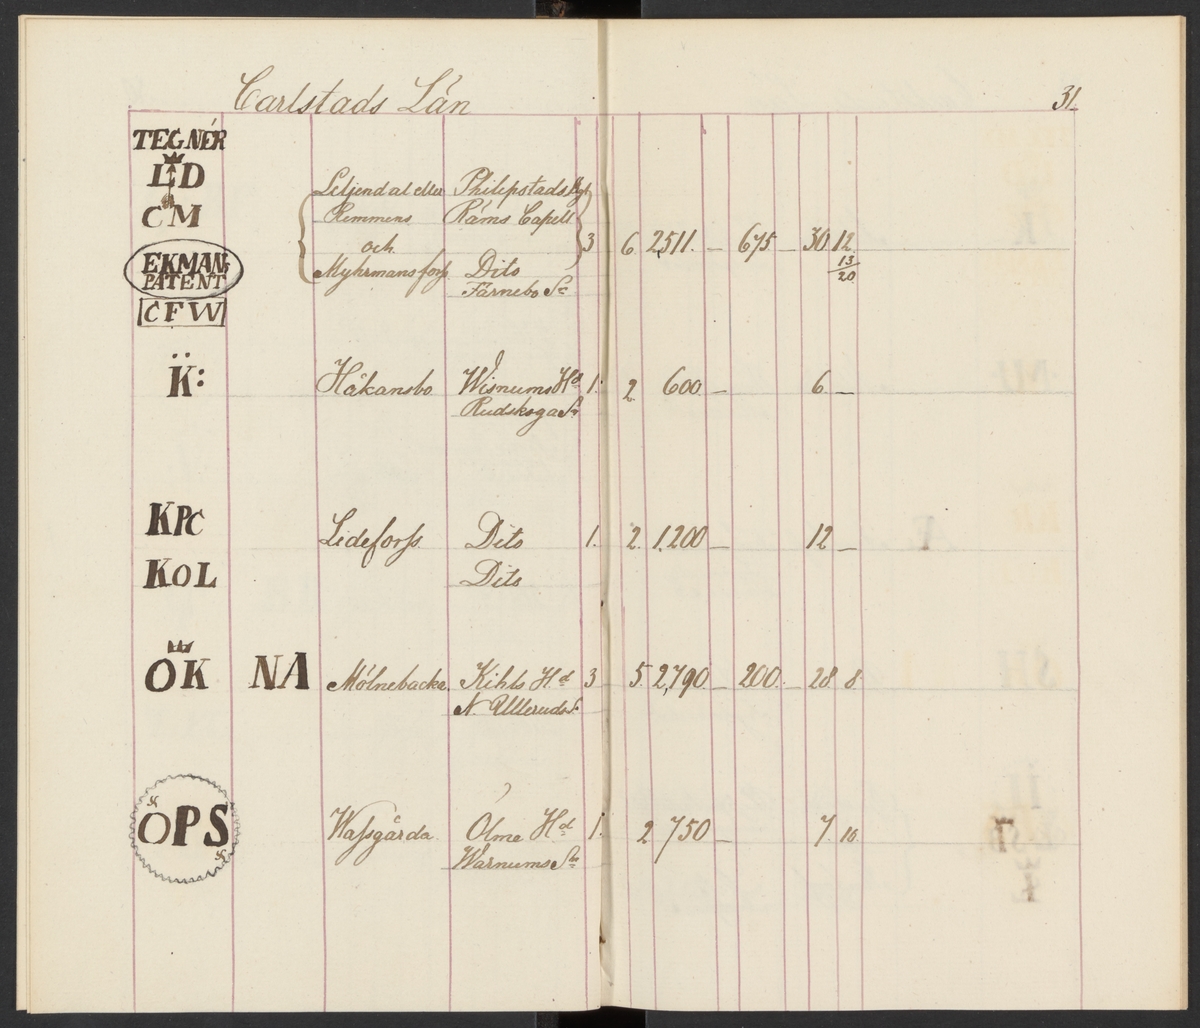 Carlstads Län
31.
TEGNÉR
LD
CM
EKMANS
PATENT
CFW
Liljendal eller Philipstads
Remmens Räms Capell
och 3 6. 2,511. — 675 — 30. 12. 13/20
Myhrmansforss Dito
Färnebo Sn
K̈:
Håkansbo Wisnums Hd 1. 2. 600. — 6. —
Rudskoga Sn
KPC
Lideforss. Dito 1. 2. 1,200 — 12 —
KOL
Dito
OK NA Mölnebacka. Kihls Hd 3 5. 2,790. — 200. — 28. 8.
N. Ulleruds S.
ÖPS
Wassgårda. Ölme Hd 1. 2 750 — 7. 10.
Warnums Sn